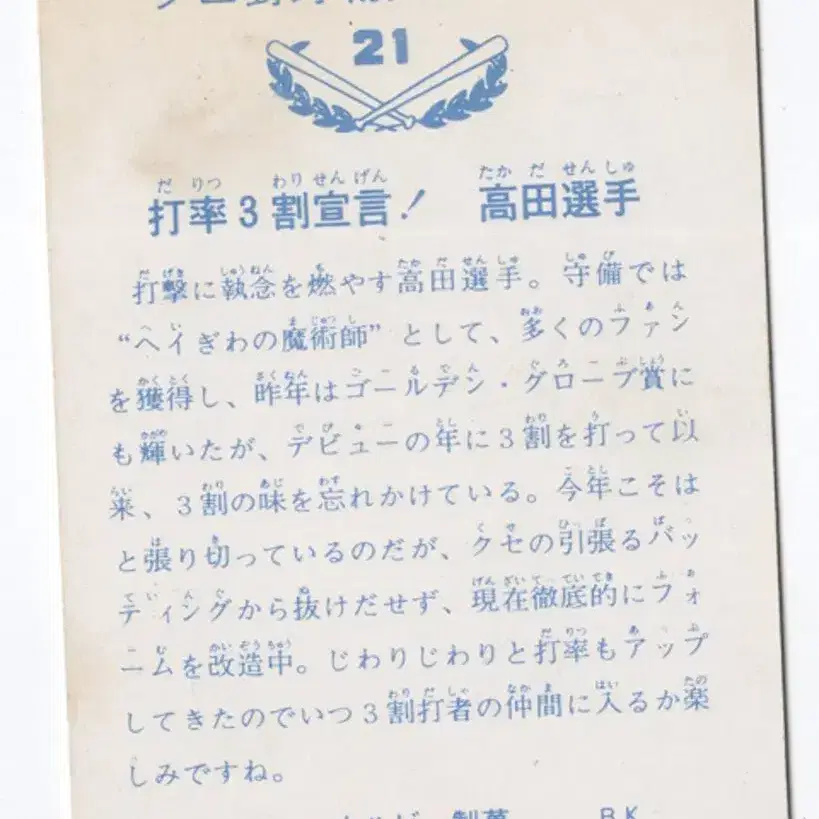 プロ野球
21
打率3割宣言! 高田選手
打撃に執念を燃やす高田選手。守備では
“ヘイぎわの魔術師”として、多くのファン
を獲得し、昨年はゴールデン・グローブ賞に
も輝いたが、デビューの年に3割を打って以
来、3割の味を忘れかけている。今年こそは
と張り切っているのだが、クセの引張るバッ
ティングから抜けだせず、現在徹底的にフォ
ームを改造中。じわりじわりと打率もアップ
してきたのでいつ3割打者の仲間に入るか楽
しみですね。
カルビー製菓 BK